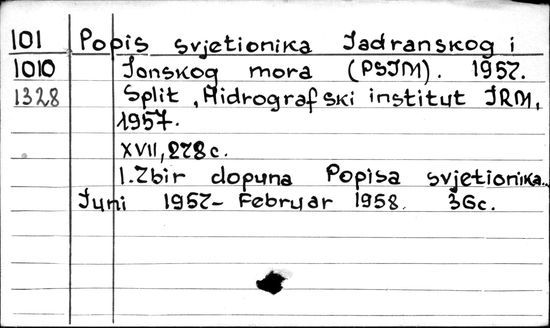 101 Popis svjetionika Jadranskog i
1010 Jonskog mora (PSJM). 1957.
1328 Split, Hidrografski institut JRM,
1957.
XVII, 278 c.
1. Zbir dopuna Popisa svjetionika...
Juni 1957- Februar 1958. 36c.